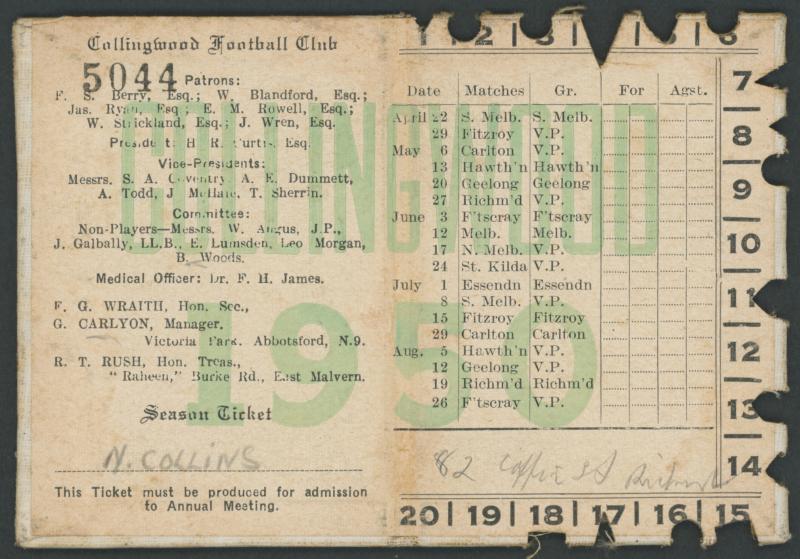 Collingwood Football Club
5044
Patrons:
F. S. Berry, Esq.; W. Blandford, Esq.;
Jas. Ryan, Esq.; E. M. Rowell, Esq.;
W. Strickland, Esq.; J. Wren, Esq.
President: H. R. Curtis, Esq.
Vice-Presidents:
Messrs. S. A. Coventry, A. E. Dummett,
A. Todd, J. McHale, T. Sherrin.
Committee:
Non-Players—Messrs. W. Angus, J.P.,
J. Galbally, LL.B., E. Lumsden, Leo Morgan,
B. Woods.
Medical Officer: Dr. F. H. James.
F. G. WRAITH, Hon. Sec.,
G. CARLYON, Manager.
Victoria Park. Abbotsford, N.9.
R. T. RUSH, Hon. Treas.,
"Raheen," Burke Rd., East Malvern.
Season Ticket
N. COLLINS
This Ticket must be produced for admission
to Annual Meeting.
COLLINGWOOD
1950
1 2 3 5 6
Date Matches Gr. For Agst.
April 22 S. Melb. S. Melb.
29 Fitzroy V.P.
May 6 Carlton V.P.
13 Hawth'n Hawth'n
20 Geelong Geelong
27 Richm'd V.P.
June 3 F'tscray F'tscray
12 Melb. Melb.
17 N. Melb. V.P.
24 St. Kilda V.P.
July 1 Essendn Essendn
8 S. Melb. V.P.
15 Fitzroy Fitzroy
29 Carlton Carlton
Aug. 5 Hawth'n V.P.
12 Geelong V.P.
19 Richm'd Richm'd
26 F'tscray V.P.
82
7
8
9
10
11
12
13
14
20 19 18 17 16 15